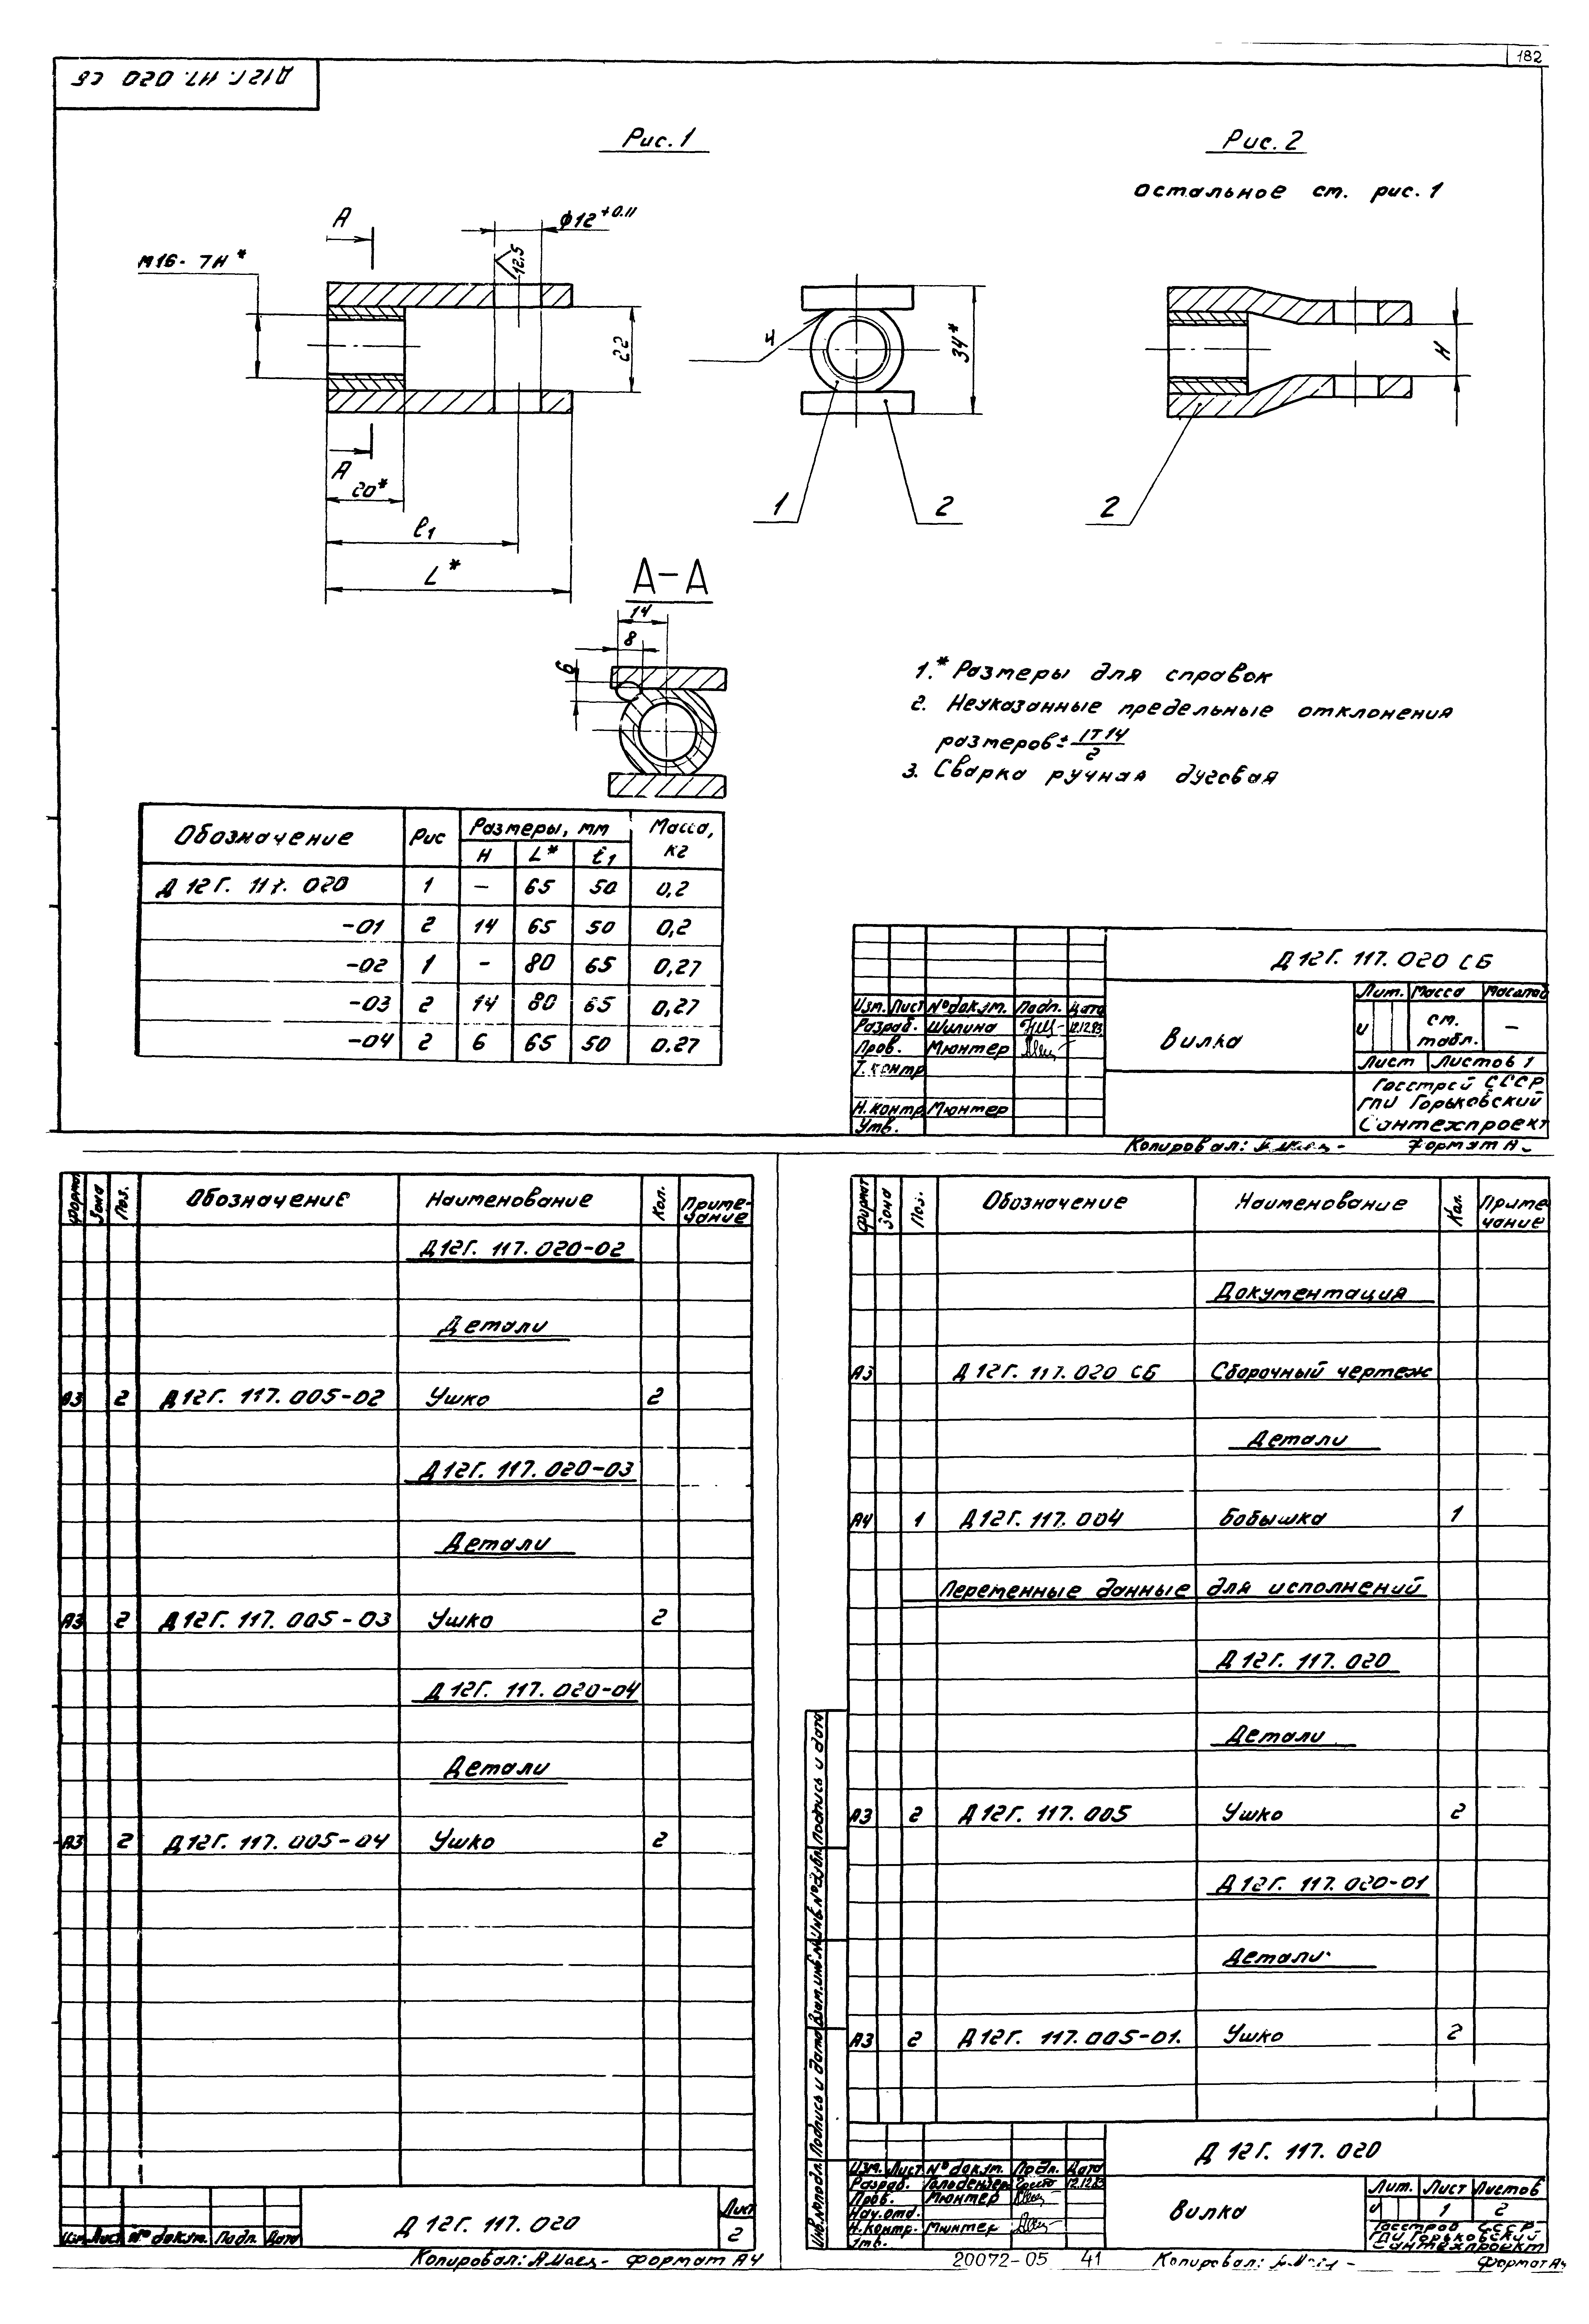 182
Д12Г. 117. 020 СБ
Рис. 1
Рис. 2
остальное см. рис. 1
А
М16-7Н*
ϕ12+0.11
12,5
22
4
34*
Н
А
20*
ℓ1
L*
1
2
2
А-А
14
8
6
1.* Размеры для справок
2. Неуказанные предельные отклонения
размеров ± IT14/2
3. Сварка ручная дуговая
Обозначение Рис Размеры, мм Масса, кг
Н L* ℓ1
Д12Г. 117. 020 1 – 65 50 0,2
-01 2 14 65 50 0,2
-02 1 - 80 65 0,27
-03 2 14 80 65 0,27
-04 2 6 65 50 0.27
Д12Г. 117. 020 СБ
Изм. Лист № докум. Подп. Дата
Разраб. Шилина 12.12.83
Пров. Мюнтер
Т. контр
Н. контр Мюнтер
Утв.
Вилка
Лит. Масса Масштаб
и см. табл. –
Лист Листов 1
Госстрой СССР
ГПИ Горьковский
Сантехпроект
Копировал: Формат А
Формат Зона Поз. Обозначение Наименование Кол. Примечание
Д12Г. 117. 020-02
Детали
А3 2 Д12Г. 117. 005-02 Ушко 2
Д12Г. 117. 020-03
Детали
А3 2 Д12Г. 117. 005-03 Ушко 2
Д12Г. 117. 020-04
Детали
А3 2 Д12Г. 117. 005-04 Ушко 2
Изм Лист № докум. Подп. Дата
Д12Г. 117. 020
Лист
2
Копировал: формат А4
Формат Зона Поз. Обозначение Наименование Кол. Примечание
Документация
А3 Д12Г. 117. 020 СБ Сборочный чертеж
Детали
А4 1 Д12Г. 117. 004 Бобышка 1
Переменные данные для исполнений
Д12Г. 117. 020
Детали
А3 2 Д12Г. 117. 005 Ушко 2
Д12Г. 117. 020-01
Детали
А3 2 Д12Г. 117. 005-01. Ушко 2
Инв.№подл. Подпись и дата Взам.инв.№ Инв.№дубл. Подпись и дата
Д12Г. 117. 020
Изм. Лист № докум. Подп. Дата
Разраб. 12.12.83
Пров. Мюнтер
Нач.отд.
Н.контр. Мюнтер
Утв.
Вилка
Лит. Лист Листов
и 1 2
Госстрой СССР
ГПИ Горьковский
Сантехпроект
20072-05 41
Копировал: формат А4